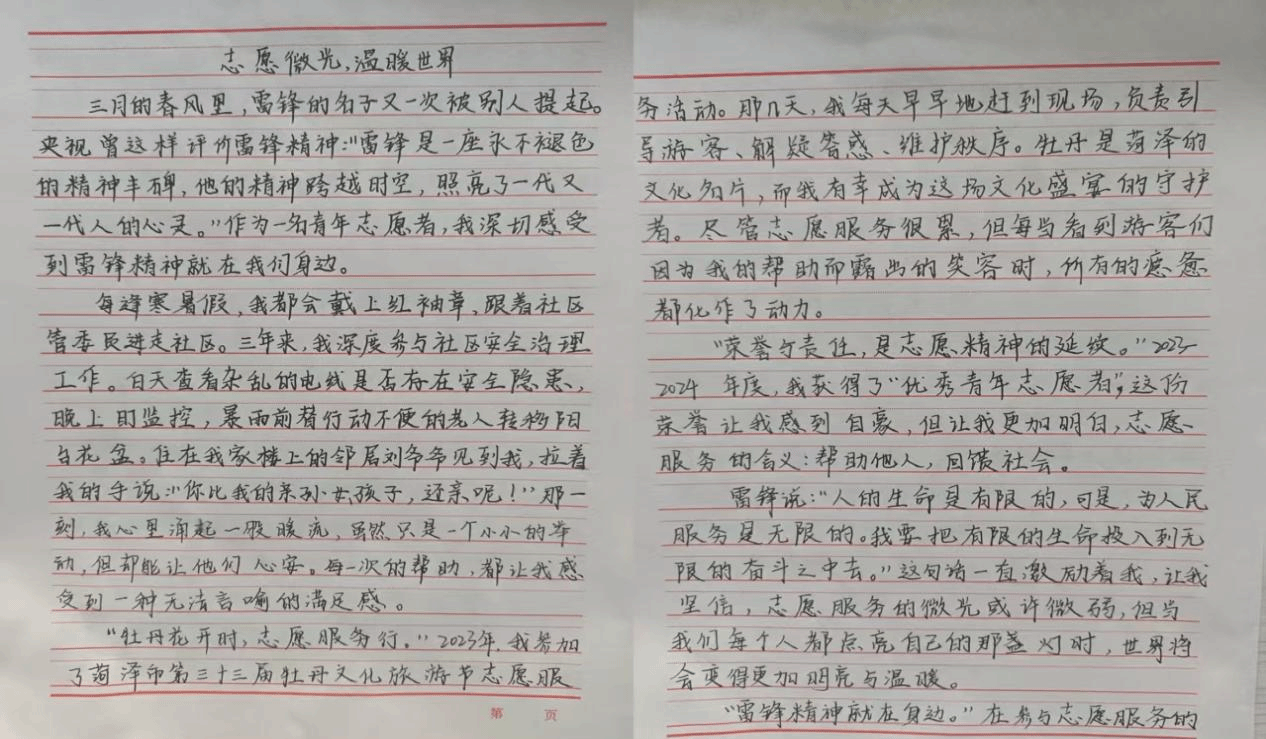 志愿微光,温暖世界
三月的春风里,雷锋的名字又一次被别人提起。
央视曾这样评价雷锋精神:“雷锋是一座永不褪色
的精神丰碑,他的精神跨越时空,照亮了一代又
一代人的心灵。”作为一名青年志愿者,我深切感受
到雷锋精神就在我们身边。
每逢寒暑假,我都会戴上红袖章、跟着社区
管委员进走社区。三年来,我深度参与社区安全治理
工作。白天查看杂乱的电线是否存在安全隐患,
晚上盯监控,暴雨前替行动不便的老人转移阳
台花盆。住在我家楼上的邻居刘爷爷见到我,拉着
我的手说:“你比我的亲孙女孩子,还亲呢!”那一
刻,我心里涌起一股暖流,虽然只是一个小小的举
动,但却能让他们心安。每一次的帮助,都让我感
受到一种无法言喻的满足感。
“牡丹花开时,志愿服务行。”2023年,我参加
了菏泽市第三十三届牡丹文化旅游节志愿服
第 页
务活动。那几天,我每天早早地赶到现场,负责引
导游客、解疑答惑、维护秩序。牡丹是菏泽的
文化名片,而我有幸成为这场文化盛宴的守护
者。尽管志愿服务很累,但每当看到游客们
因为我的帮助而露出的笑容时,所有的疲惫
都化作了动力。
“荣誉与责任,是志愿精神的延续。”2023-
2024 年度,我获得了“优秀青年志愿者”,这份
荣誉让我感到自豪,但让我更加明白,志愿
服务的含义:帮助他人,回馈社会。
雷锋说:“人的生命是有限的,可是,为人民
服务是无限的。我要把有限的生命投入到无
限的奋斗之中去。”这句话一直激励着我,让我
坚信,志愿服务的微光或许微弱,但当
我们每个人都点亮自己的那盏灯时,世界将
会变得更加明亮与温暖。
“雷锋精神就在身边。”在参与志愿服务的